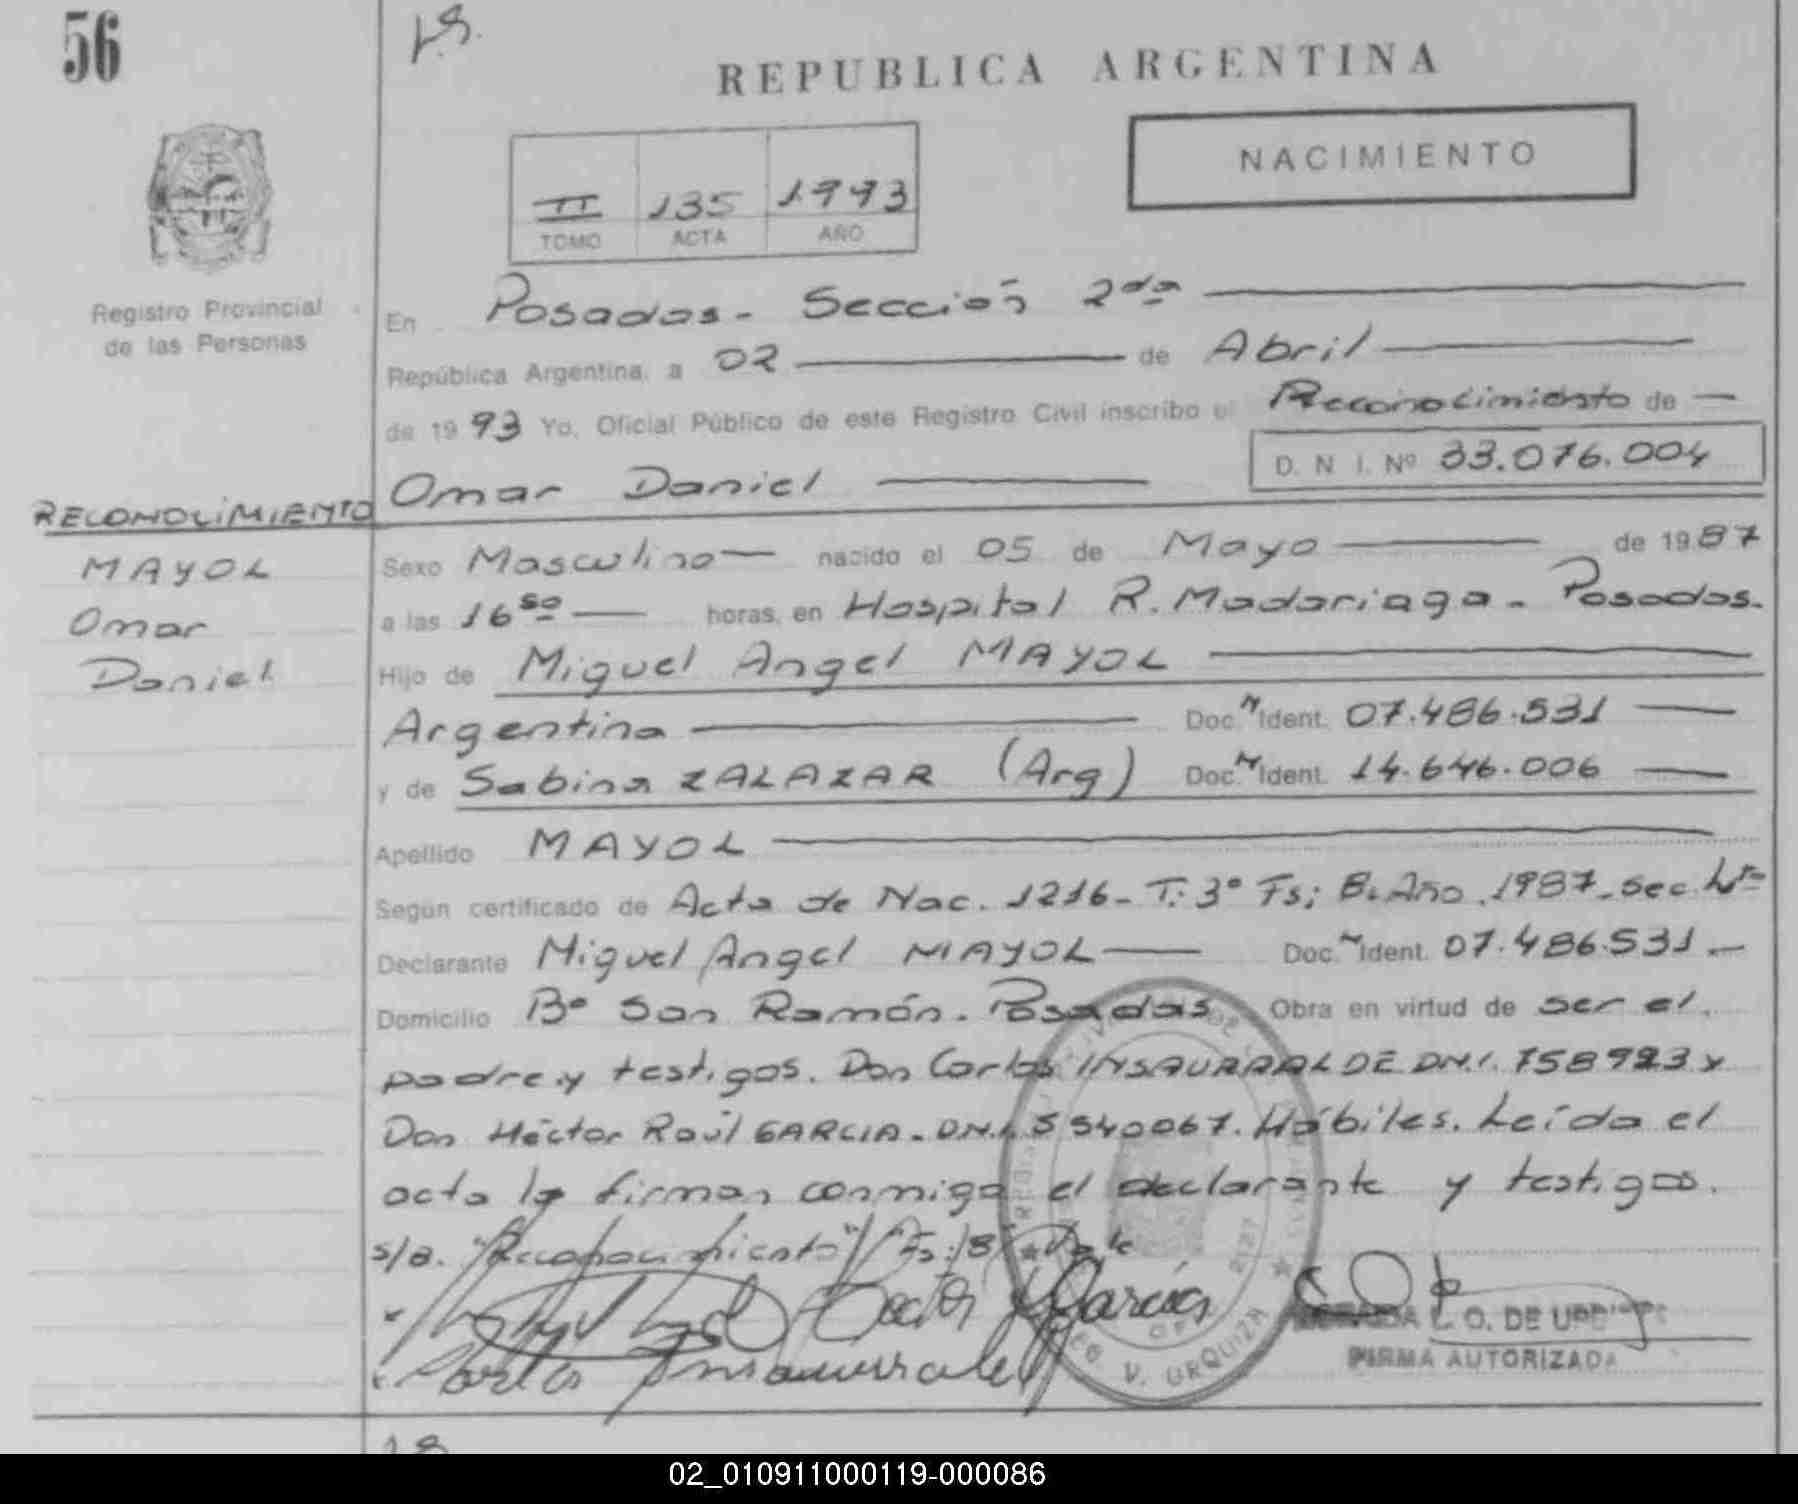 56
REPUBLICA ARGENTINA
NACIMIENTO
II 135 1993
TOMO ACTA AÑO
Registro Provincial
de las Personas
En Posadas - Sección 2da
República Argentina, a 02 de Abril
de 1993 Yo, Oficial Público de este Registro Civil inscribo el Reconocimiento de
D. N. I. Nº 33.076.004
Omar Daniel
RECONOCIMIENTO
MAYOL
Omar
Daniel
Sexo Masculino nacido el 05 de Mayo de 1987
a las 16 50 horas, en Hospital R. Madariaga - Posadas.
Hijo de Miguel Angel MAYOL
Argentina Doc. N Ident. 07.486.531
y de Sabina ZALAZAR (Arg) Doc. N Ident. 14.646.006
Apellido MAYOL
Según certificado de Acta de Nac. 1216 - T: 3º Fs; 8. Año. 1987 - Sec.
Declarante Miguel Angel MAYOL Doc. N Ident. 07.486.531.
Domicilio Bº San Ramón. Posadas Obra en virtud de ser el
padre y testigos. Don Carlos INSAURRALDE DN.I. 758923 y
Don Héctor Raúl GARCIA - D.N.I. 5540067. Hábiles. Leída el
acta la firman conmigo el declarante y testigos.
s/a. "Reconocimiento" / "Fs: 8" Vale
Garcia
Carlos Insaurralde
L. O. DE
FIRMA AUTORIZADA
V. URQUIZA
02_010911000119-000086